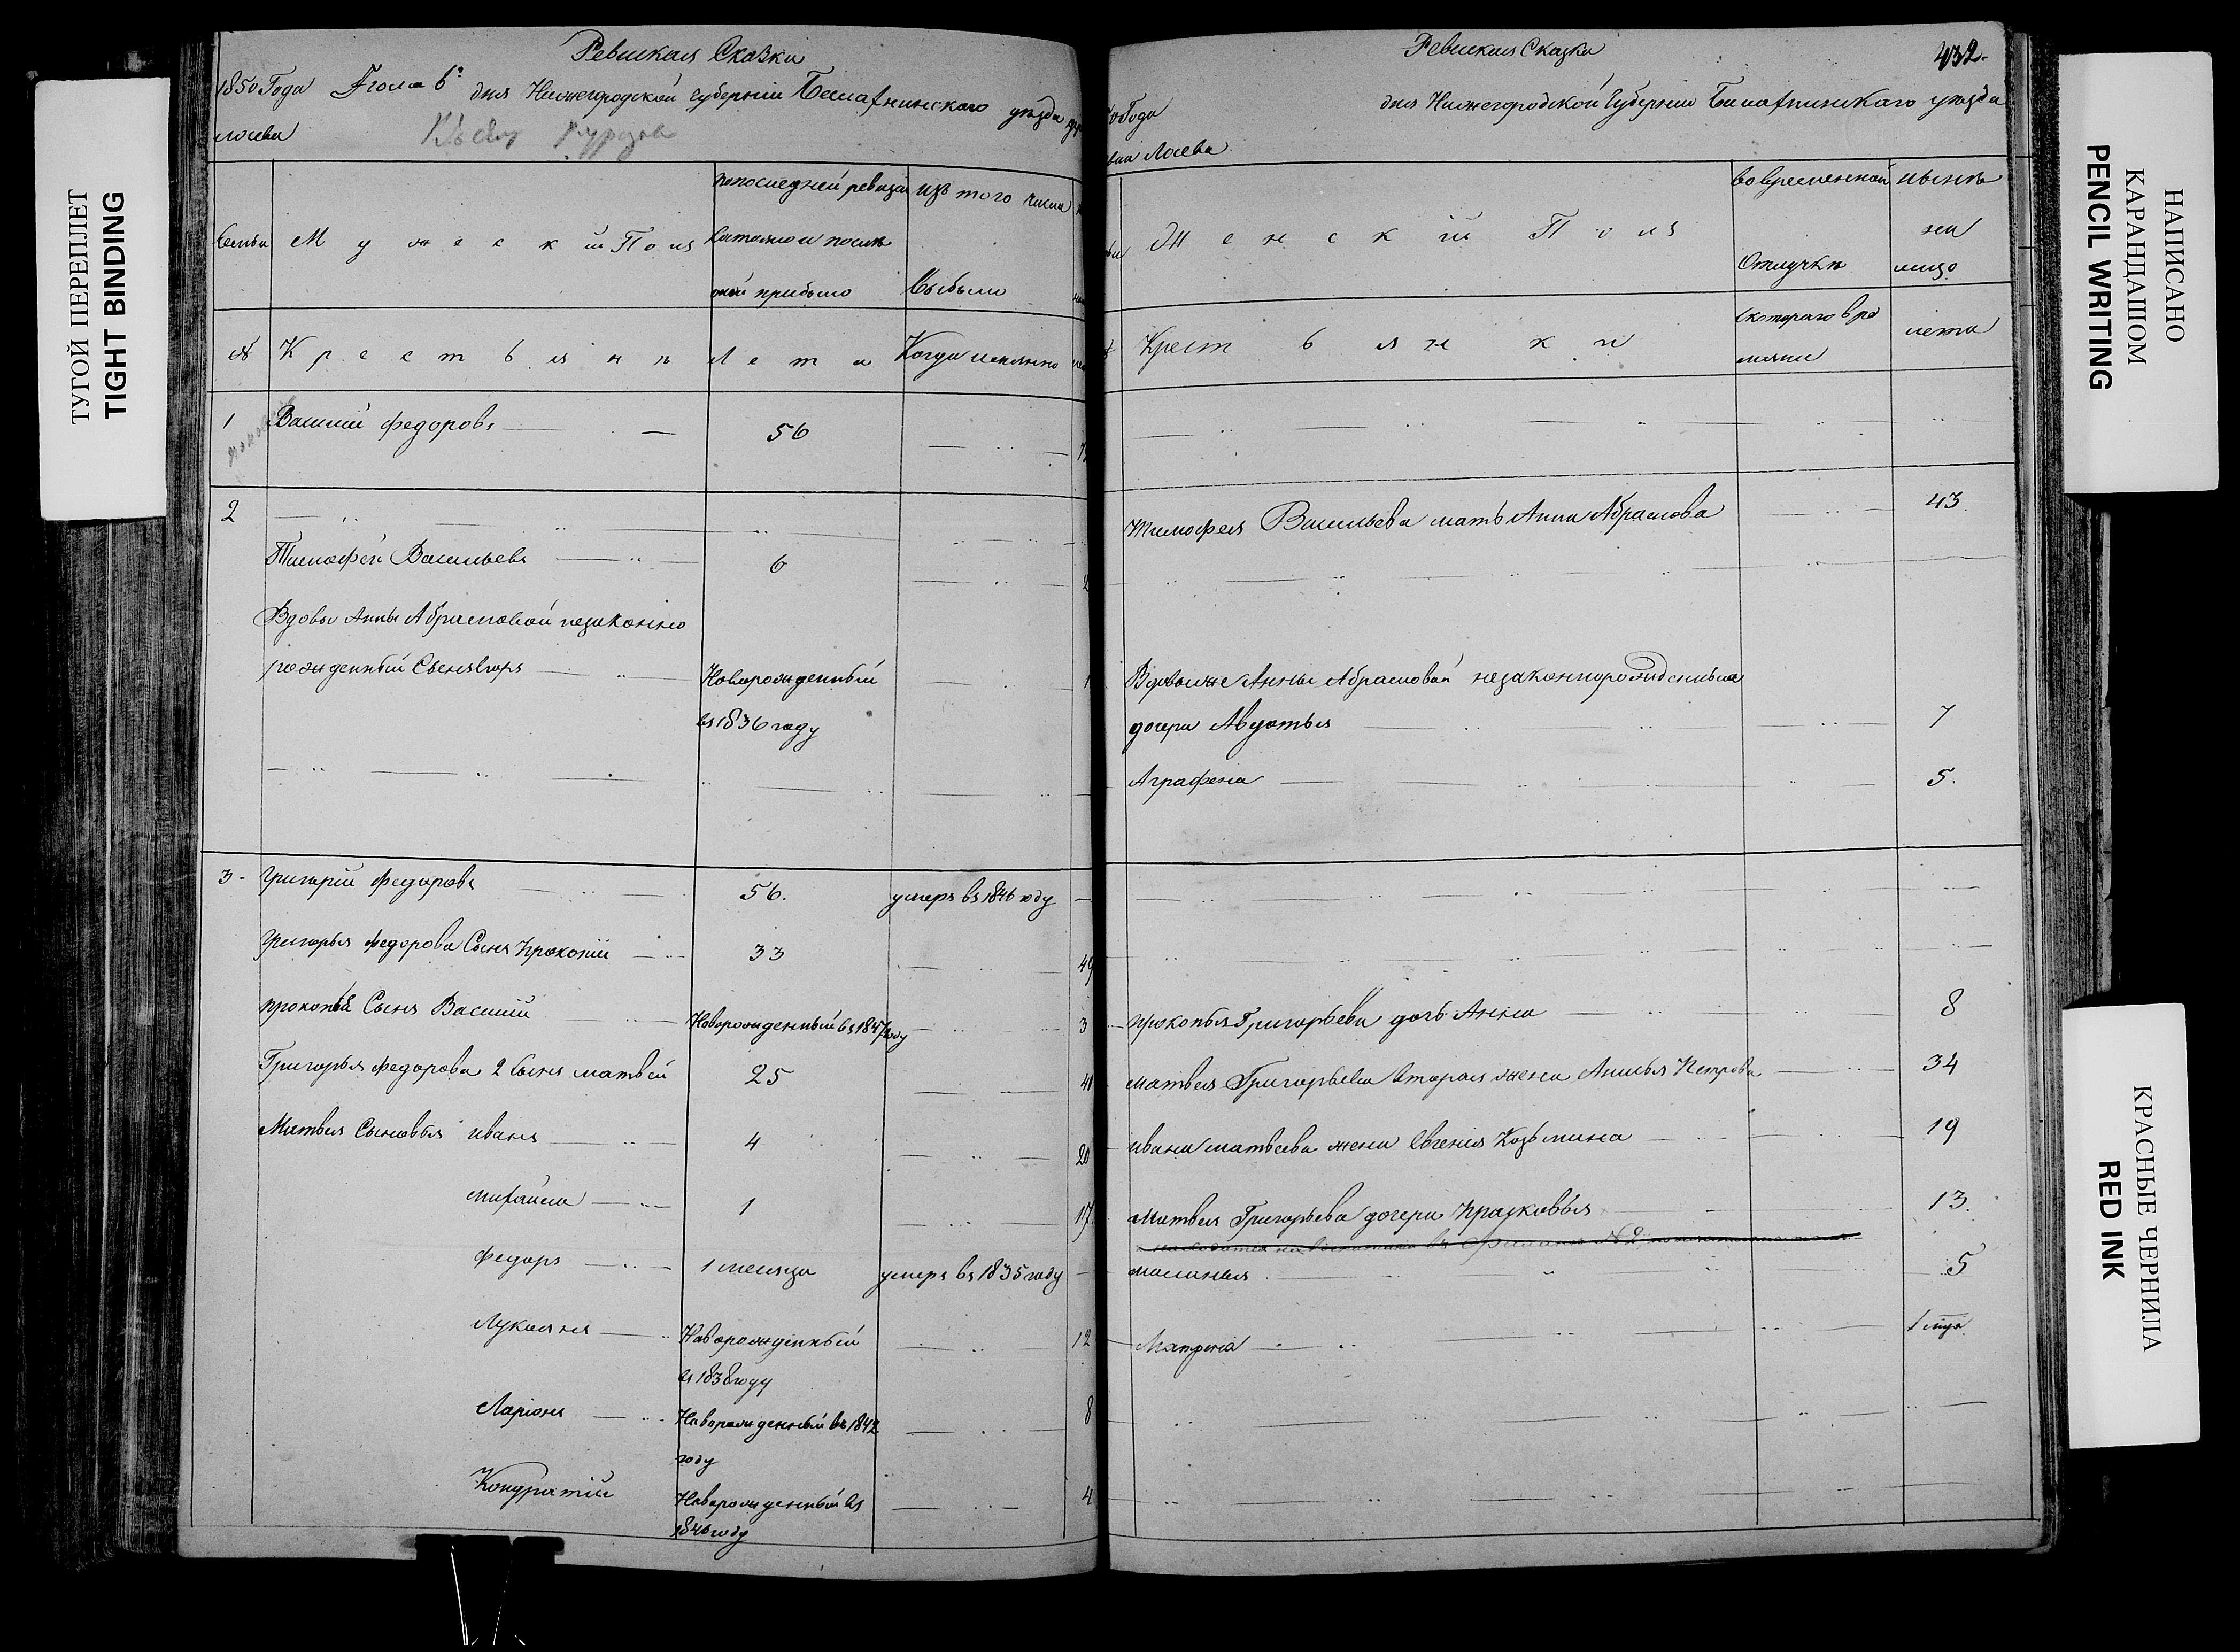 ТУГОЙ ПЕРЕПЛЕТ
TIGHT BINDING
Ревиская Сказка
1850 Года дня Нижегородской губернии Балахнинского уезда
лосева
Семьи
Мужеский Полъ
По последней ревизии
состояло и после
оной прибыло
Изъ того числа
Выбыло
№
Крестьянъ
Лета
Когда именно
1
Василий Федоровъ
56
2
Тимофей Васильевъ
6
2
Вдовы Анны Абрамовой незаконно
рожденный Сынъ
Новорожденный
1
въ 1836 году
3
Григорий Федоровъ
56.
умеръ въ 1846 году
Григорья Федорова Сынъ Прокопий
33
49
Прокопья Сынъ Василий
Новорожденный въ 1847 году
3
Григорья Федорова 2 Сынъ Матвей
25
Матвея Сыновья Иванъ
4
20
Михайла
1
17
Федоръ
1 месяца
умеръ въ 1835 году
Лукоянъ
Новорожденный
12
въ 1838 году
Ларіонъ
Новорожденный въ 1842
8
году
Кондратий
Новорожденный въ
4
1846 году
Ревиская Сказка
432.
Года
дня Нижегородской Губернии Балахнинскаго уезда
Лосева
Женский Полъ
Во временной
отлучке
ныне
на
лицо
Крестьянки
с котораго вре
мяни
лета
Тимофея Васильева мать Анна Абрамова
43.
Вдовы же Анны Абрамовой незаконнорожденныя
дочери Авдотья
7
Аграфена
5.
Прокопья Григорьева дочь Анна
8
Матвея Григорьева вторая жена Анисья Петрова
34
Ивана Матвеева жена Евгения Козьмина
19
Матвея Григорьева дочери Прасковья
13.
Маланья
5
Матрена
НАПИСАНО
КАРАНДАШОМ
PENCIL WRITING
КРАСНЫЕ ЧЕРНИЛА
RED INK